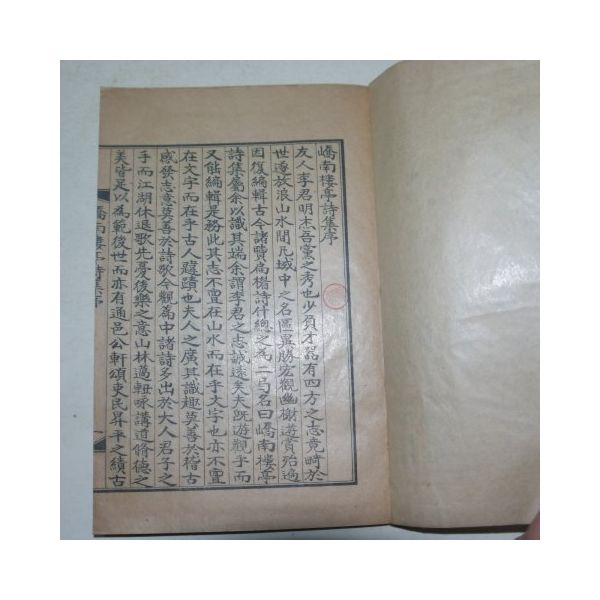 嶠南樓亭詩集序
友人李君明杰吾黨之秀也少負才器有四方之志竟畸於
世遂放浪山水間凡域中之名區異勝宏觀幽榭遊賞殆遍
因復編輯古今諸賢咼楣詩什總之為二弓名曰嶠南樓亭
詩集屬余以識其端余謂李君之志誠遠矣夫旣遊觀乎而
又能編輯是務此其志不亶在山水而在乎文字也亦不亶
在文字而在乎古人躅蹟也夫人之廣其識趣莫善於稽古
感發志意莫善於詩歌今觀篇中諸詩多出於大人君子之
手而江湖休退歌先憂後樂之意山林邁軸咏講道脩德之
美皆足以為範後世而亦有通邑公軒頌吏民昇平之績古
嶠南樓亭詩集序